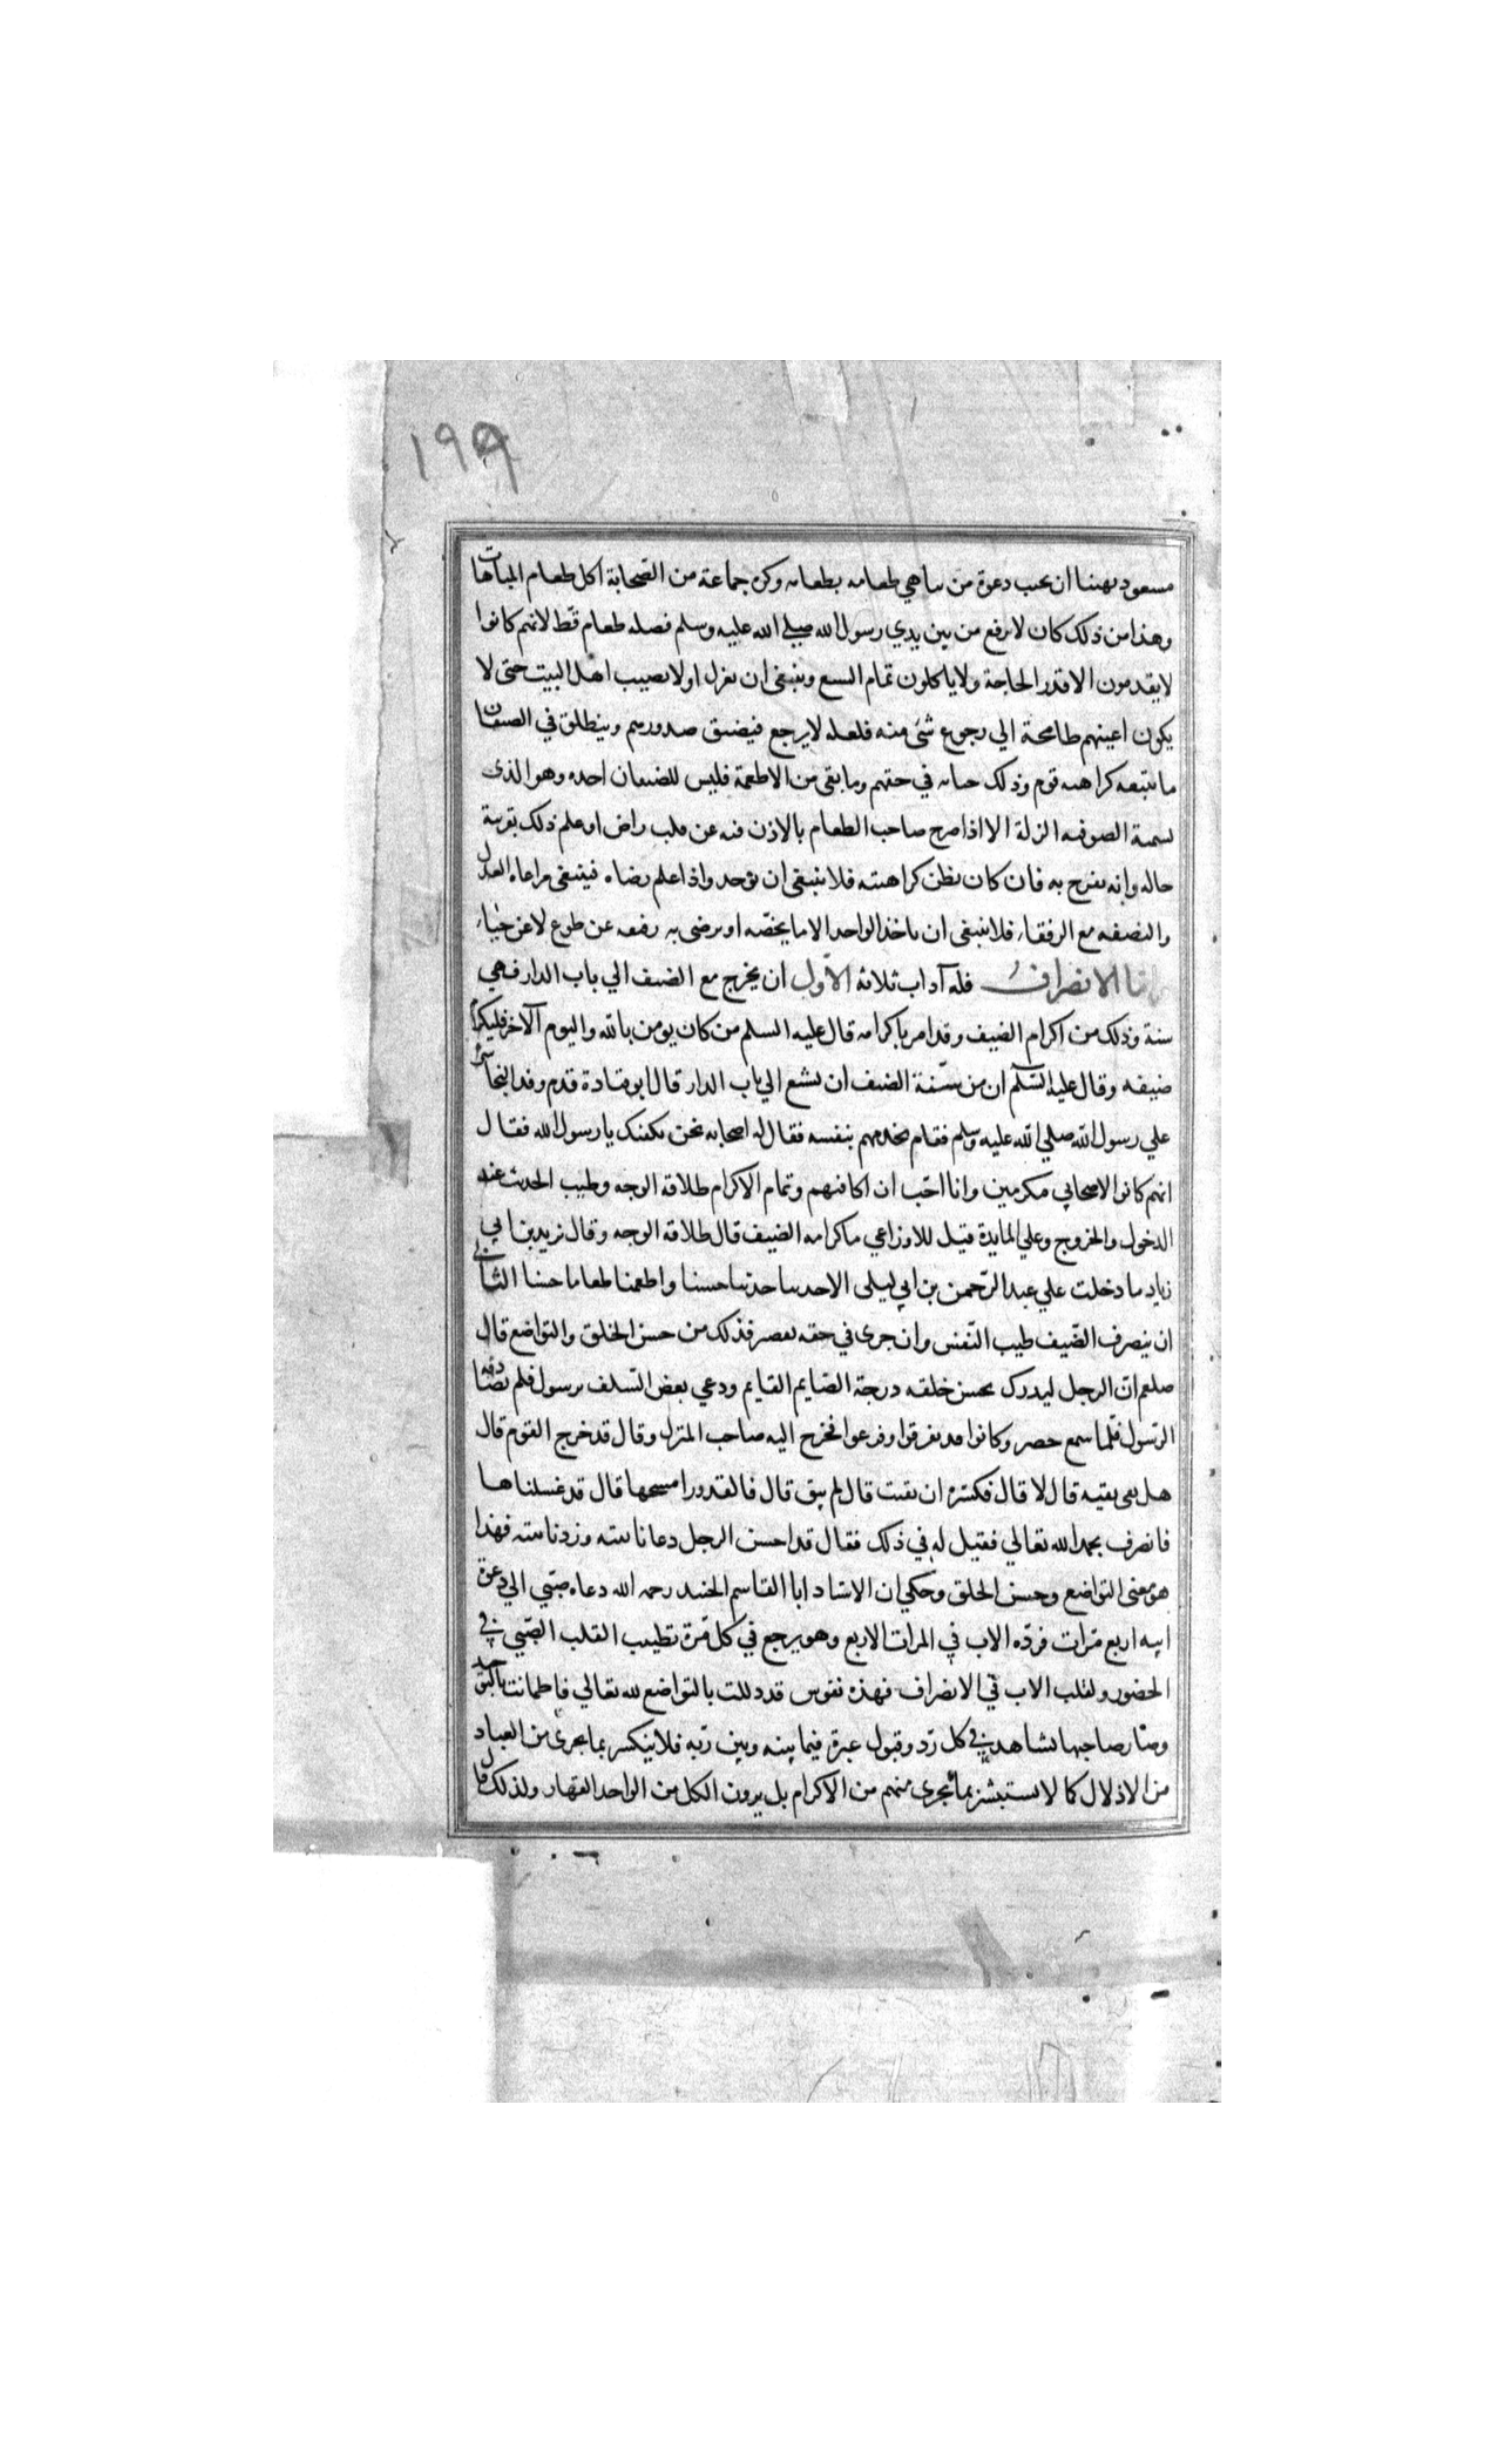 ١٩٩
مسعود نهينا ان نجيب دعوة من يباهي طعامه بطعامه وكره جماعة من الصحابة اكل طعام المباهات
وهذا من ذلك كان لا يرفع من بين يدي رسول الله صلى الله عليه وسلم فضله طعام قط لانهم كانوا
لا يقدمون الا قدر الحاجة ولا ياكلون تمام الشبع وينبغي ان يعزل اولا نصيب اهل البيت حتى لا
يكون اعينهم طامحة الي رجوع شئ منه فلعله لا يرجع فيضيق صدورهم وينطلق في الضيفان
ما يتبعه كراهيه قوم وذلك خيانه في حقهم وما بقى من الاطعمة فليس للضيفان اخذه وهو الذى
تسميه الصوفيه الزلة الا اذا صرح صاحب الطعام بالاذن فيه عن قلب راض او علم ذلك بقرينة
حاله وانه يفرح به فان كان يظن كراهيته فلا ينبغى ان يؤخذ واذا علم رضاه فينبغى مراعاه العدل
والنصفه مع الرفقاء فلا ينبغى ان ياخذ الواحد الا ما يخصّه او يرضى به رفيقه عن طوع لا عن حياء
فاما الانصراف فله آداب ثلاثه الاول ان يخرج مع الضيف الي باب الدار فهي
سنة وذلك من اكرام الضيف وقد امر باكرامه قال عليه السلم من كان يومن بالله واليوم الآخر فليكرم
ضيفه وقال عليه السلم ان من سنّة الضيف ان يشيع الي باب الدار قال ابو قتادة قدم وفد النجاشي
علي رسول الله صلي الله عليه وسلم فقام يخدمهم بنفسه فقال له اصحابه نحن نكفيك يا رسول الله فقال
انهم كانوا لاصحابي مكرمين وانا احّب ان اكافئهم وتمام الاكرام طلاقة الوجه وطيب الحديث عند
الدخول والخروج وعلي المايدة قيل للاوزاعي ما كرامه الضيف قال طلاقه الوجه وقال يزيد بن ابي
زياد ما دخلت علي عبد الرّحمن بن ابي ليلى الا حدثنا حديثا حسنا واطعمنا طعاما حسنا الثاني
ان ينصرف الضّيف طيب النّفس وان جرى في حقه تقصير فذلك من حسن الخلق والتواضع قال
صلعم ان الرجل ليدرك بحسن خلقه درجة الصّايم القايم ودعي بعض السّلف برسول فلم يصادفه
الرّسول فلّما سمع حضر وكانوا قد تفرقوا وفرغوا فخرج اليه صاحب المنزل وقال قد خرج القوم قال
هل بقى بقيه قال لا قال فكسره ان بقيت قال لم يبق قال فالقدور امسحها قال قد غسلناها
فانصرف يحمد الله تعالي فقيل له في ذلك فقال قد احسن الرجل دعانا بنيه وردنا بنيه فهذا
هو معنى التواضع وحسن الخلق وحكي ان الاستاد ابا القاسم الجنيد رحمه الله دعاه صبّي الي دعوة
ابيه اربع مّرات فردّه الاب في المرات الاربع وهو يرجع في كل مّرة تطييب القلب الصّبي في
الحضور ولقلب الاب في الانصراف فهذه نفوس قد ذللت بالتواضع لله تعالي فاطمانت بالتوحيد
وصار صاحبها يشاهد في كل رّد وقبول عبرة فيما بينه وبين رّبه فلا ينكسر بما يجرى من العباد
من الاذلال كما لا يستبشر بما يجرى منهم من الاكرام بل يرون الكل من الواحد القهار ولذلك قال